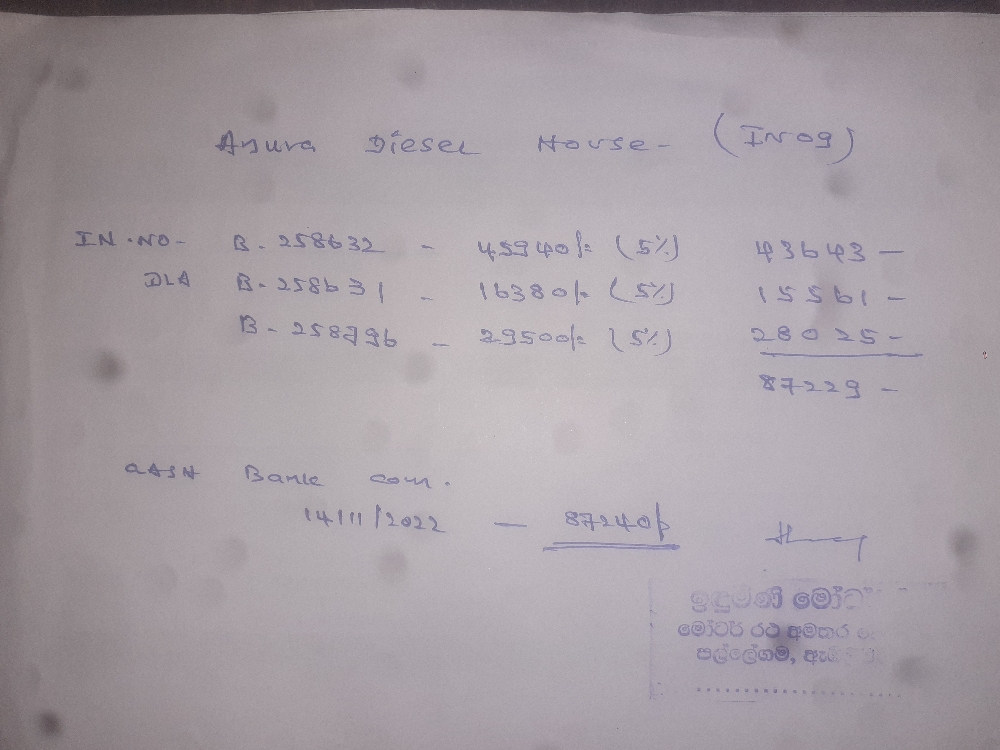 Anura Diesel House - (IN09)
IN.NO- B - 258632 - 45940/= (5%) 43643 -
DLA B - 258631 - 16380/= (5%) 15561 -
B - 258796 - 29500/= (5%) 28025 -
87229 -
CASH Bank com.
14/11/2022 - 87240/=
ඉඳුමණි මෝටර්
මෝටර් රථ අමතර
පල්ලේගම,